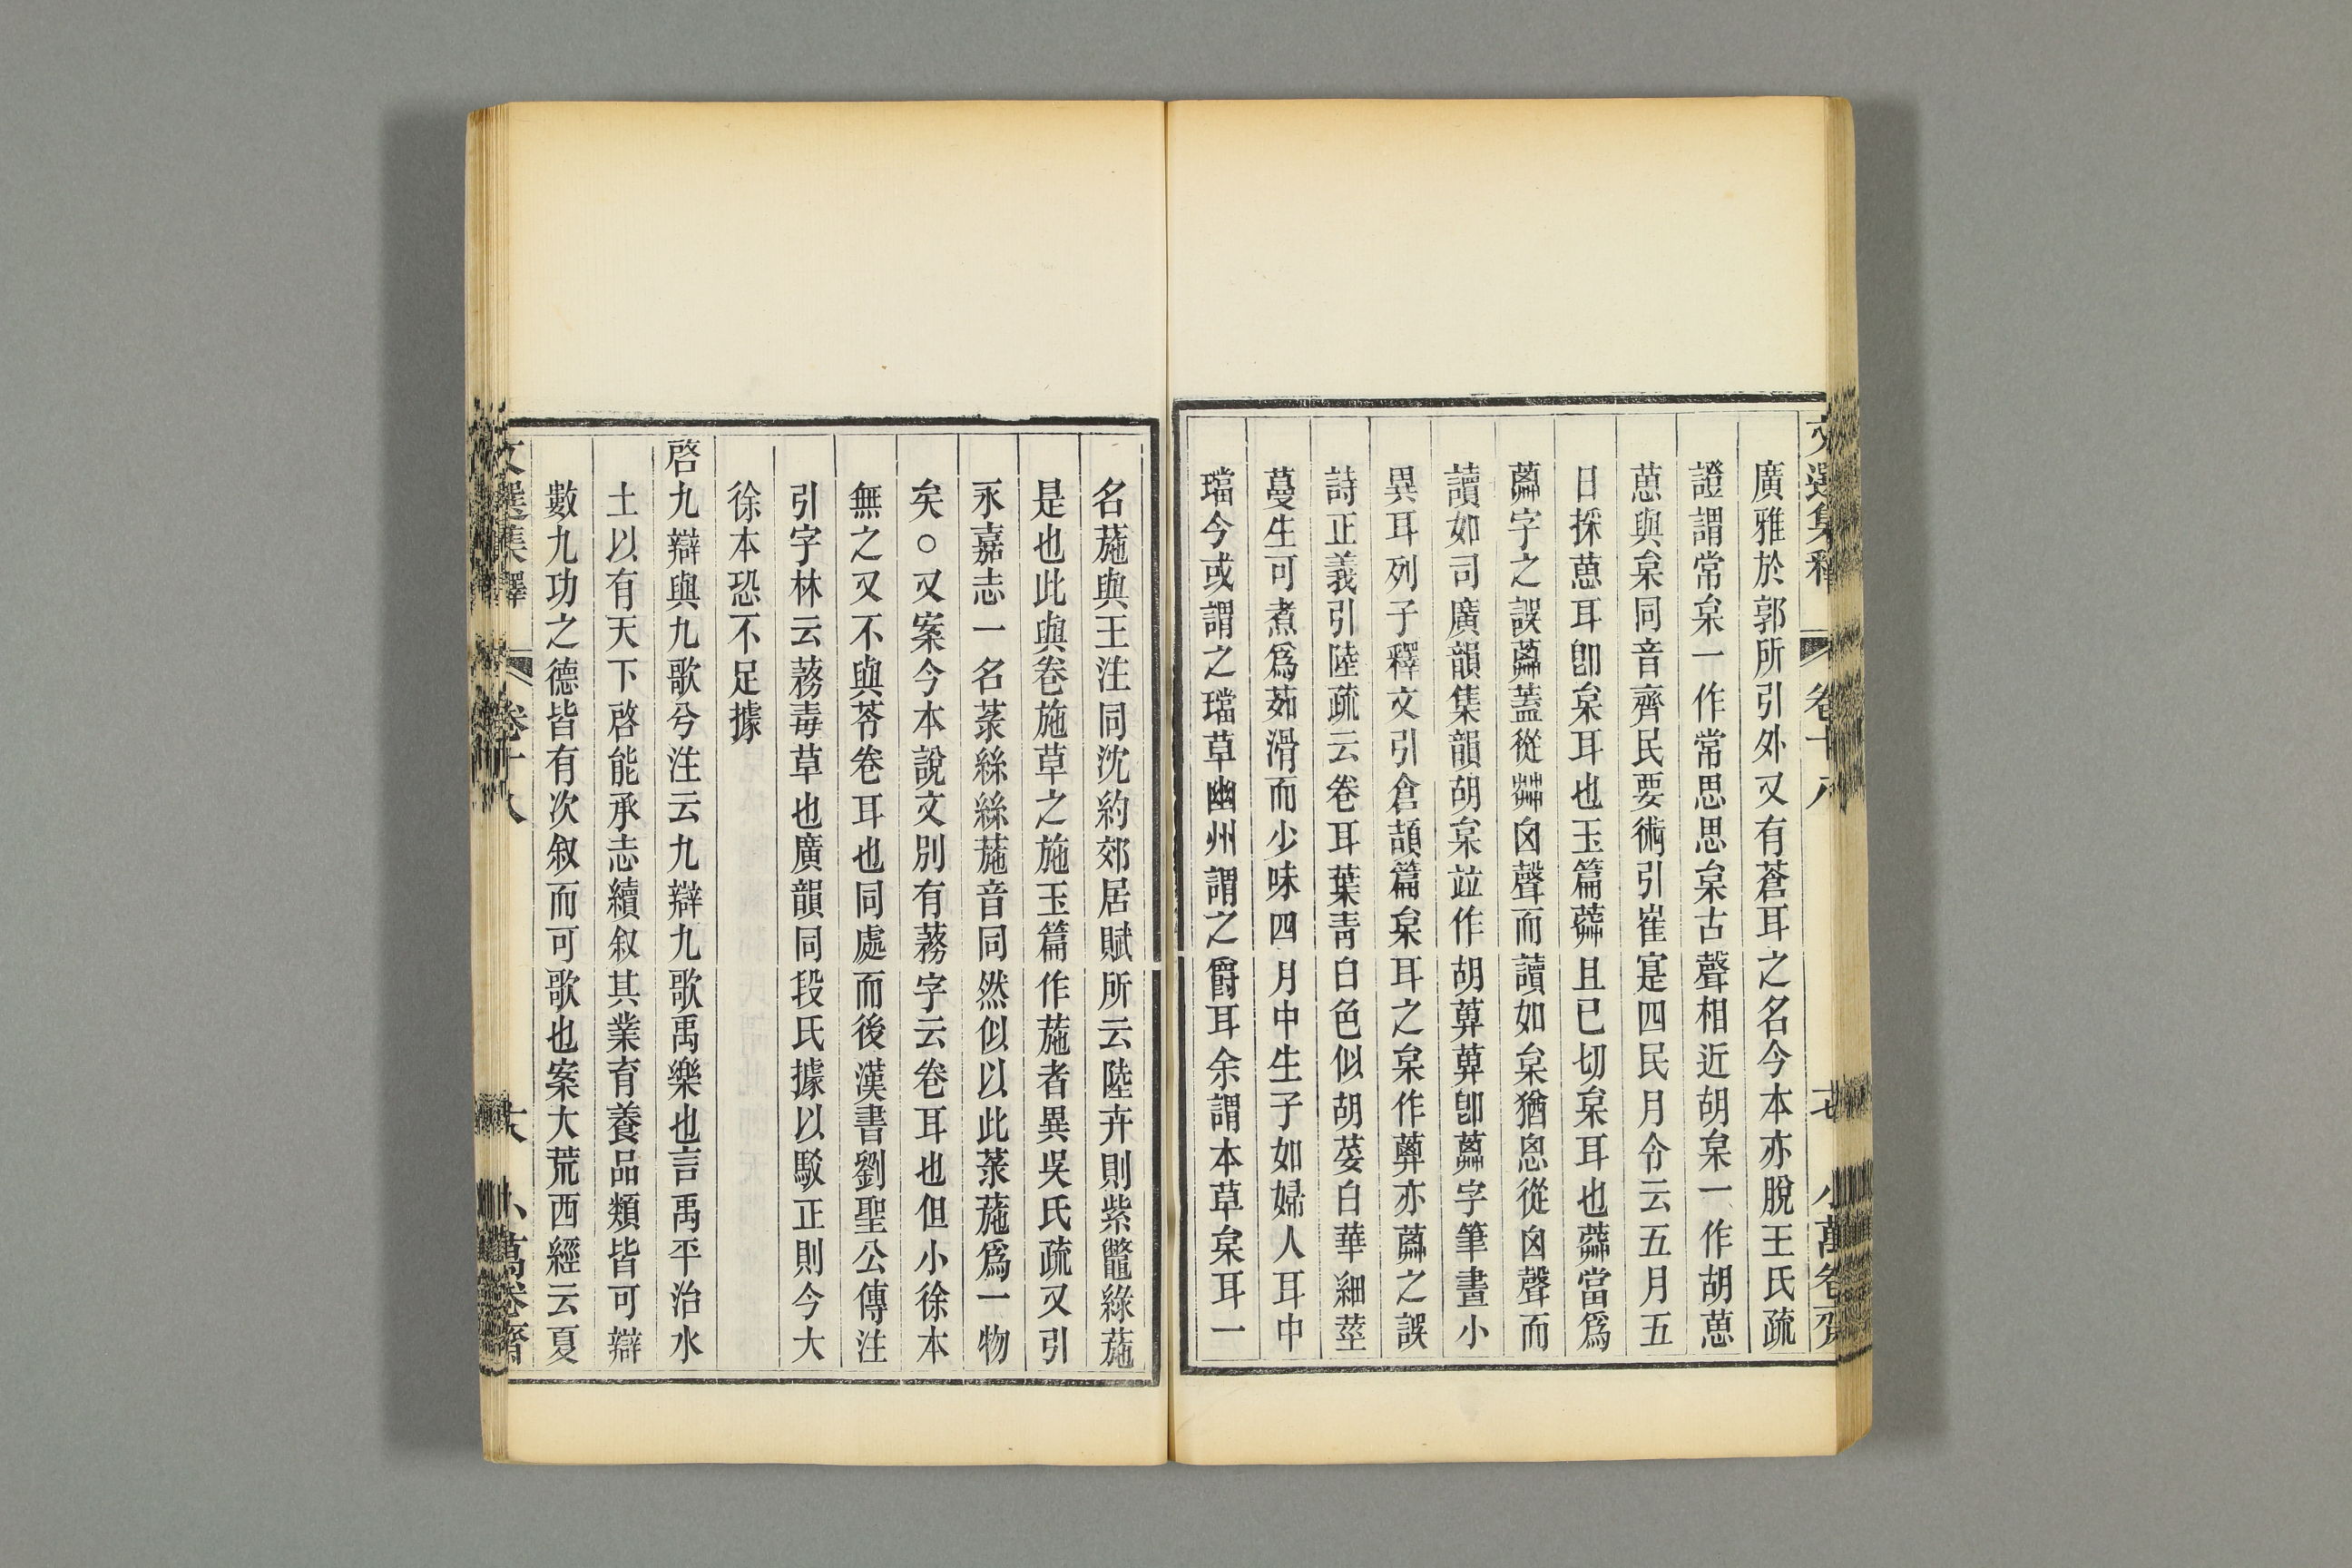 文選集釋 卷十八 十七 小萬卷齋
廣雅於郭所引外又有蒼耳之名今本亦脫王氏疏
證謂常枲一作常思思枲古聲相近胡枲一作胡葸
葸與枲同音齊民要術引崔寔四民月令云五月五
日採葸耳卽枲耳也玉篇且已切枲耳也當爲
字之誤蓋從茻囟聲而讀如枲猶恖從囟聲而
讀如司廣韻集韻胡枲竝作胡卽字筆畫小
異耳列子釋文引倉頡篇枲耳之枲作亦之誤
詩正義引陸疏云卷耳葉靑白色似胡荽白華細莖
蔓生可煮爲茹滑而少味四月中生子如婦人耳中
璫今或謂之璫草幽州謂之爵耳余謂本草枲耳一
名葹與王注同沈約郊居賦所云陸卉則紫虌綠葹
是也此與卷施草之施玉篇作葹者異吳氏疏又引
永嘉志一名菉絲絲葹音同然似以此菉葹爲一物
矣○又案今本說文別有蓩字云卷耳也但小徐本
無之又不與苓卷耳也同處而後漢書劉聖公傳注
引字林云蓩毒草也廣韻同段氏據以駁正則今大
徐本恐不足據
啓九辯與九歌兮注云九辯九歌禹樂也言禹平治水
土以有天下啓能承志續叙其業育養品類皆可辯
數九功之德皆有次叙而可歌也案大荒西經云夏
文選集釋 卷十八 六 小萬卷齋